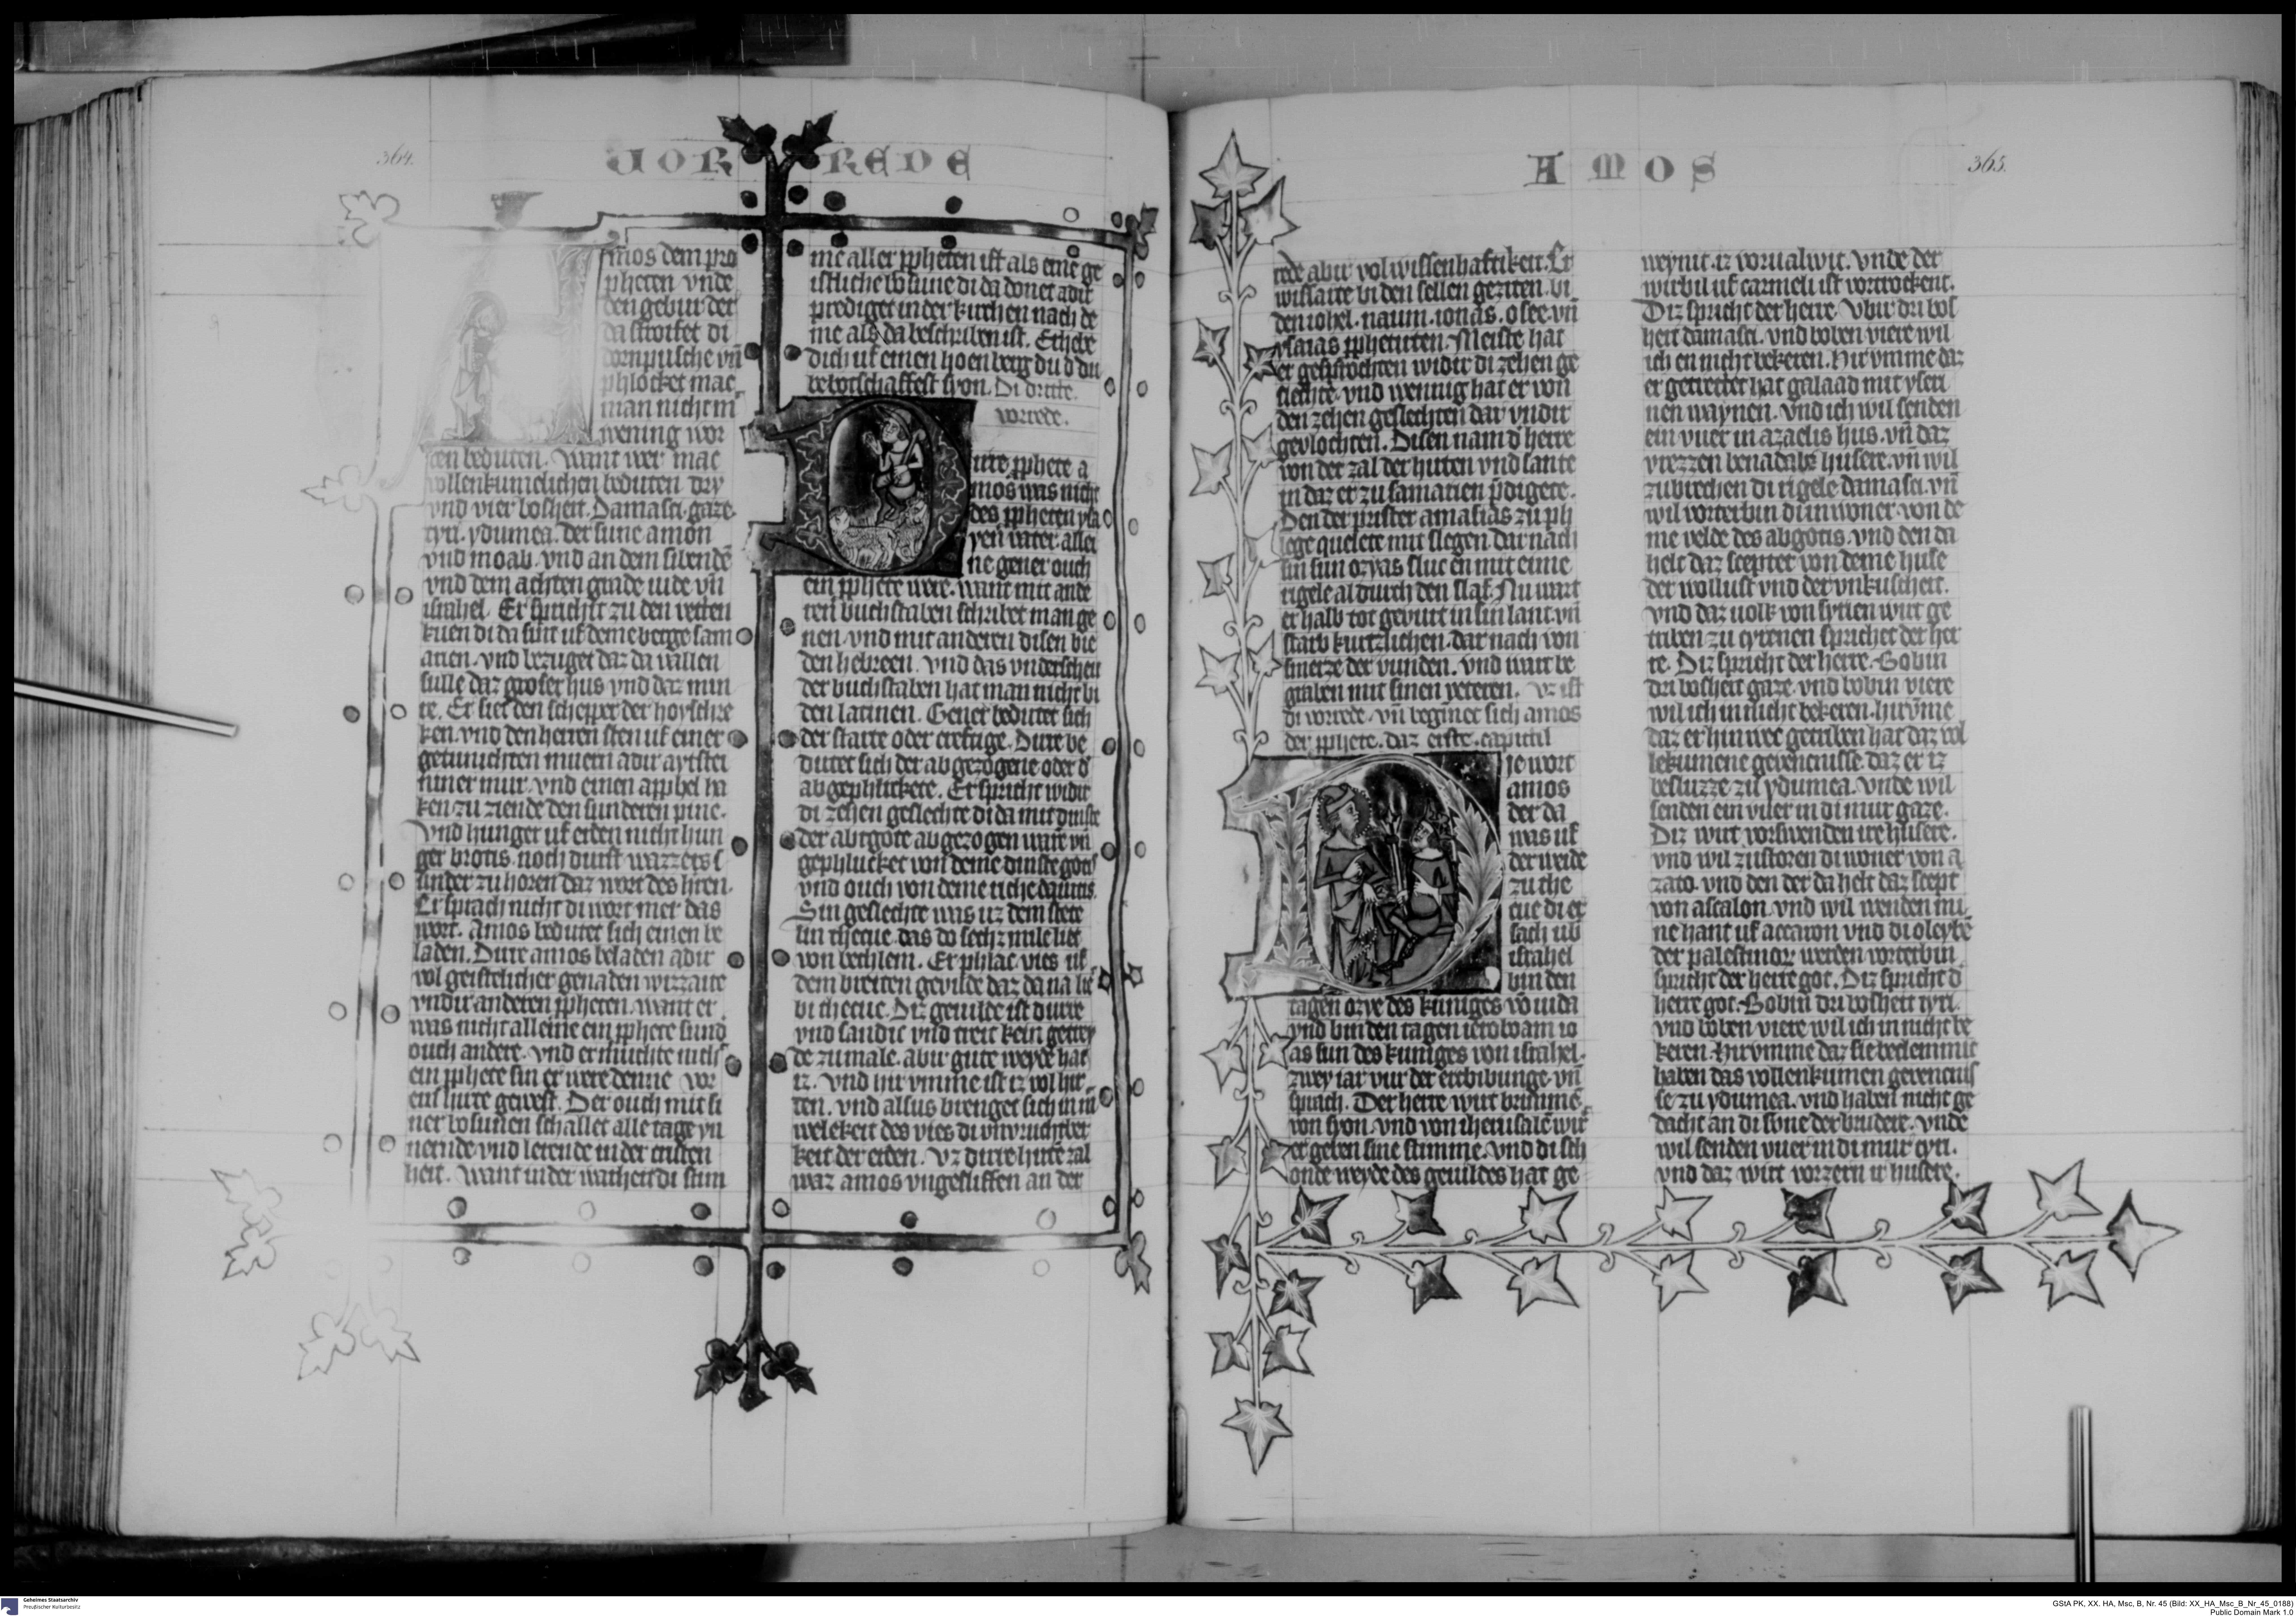 364.
VOR REDE
Amos dem pro
pheten vnde
den gebur der
da stroifet di
dornpusche vn̄
phlocket mac
man nicht m̄
wening wor
ten beduten. Want wer mac
vollenkumelichen beduten dry
vnd vier bosheit. Damasci. gaze.
tyri. ydumea. der sune amon
vnd moab. vnd an dem sibendē
vnd dem achten grade iude vn̄
israhel. Er sprichit zu den vetten
kuen di da sint uf deme berge sam
arien. vnd bezuget daz da vallen
sulle daz groser hus vnd daz min
re. Er siet den schepper der hoyschre
ken. vnd den herren sten uf einer
getunichten muern adir aytstei
niner mur. vnd einen apphel ha
ken. zu ziende den sunderen pine.
Vnd hunger uf erden nicht hun
ger brotis. noch durst wazzers. s
under zu horen daz wort des h̄ren.
Er sprach nicht di wort mer das
wort. Amos bedutet sich einen be
laden. Dirre amos beladen adir
vol geistelicher genaden wizzaite
vndir anderen ppheten. want er
was nicht alleine ein pphete sund
ouch andere. vnd er muchte nich
ein pphete sin er were denne vor
ein hirte gewest. Der ouch mit si
ner bosunen schallet alle tage yn
nernde vnd lerende in der cristen
heit. Want in der warheit di stim
me aller ppheten ist als eine ge
istliche bosune di da donet adir
prediget in der kirchen nach de
me als da beschriben ist. Erhebe
dich uf einen hoen berg du d̄ du
bebotschaffest syon. Di dritte
vorrede.
Dirre pphete a
mos was nicht
des ppheten ysa
yen vater. allei
ne gener ouch
ein pphete were. want mit ande
ren buchstaben schribet man ge
nen. vnd mit anderen disen bie
den hebreen. vnd das vnderscheit
der buchstaben hat man nicht bi
den latinen. Gener bedutet sich
der starke oder crefuge. Dirre be
dutet sich der abgezogene oder d̄
abgephlickete. Er spricht widir
di zehen geslechte di da mit dinste
der abtgote abgezogen warē vn̄
gephlucket von deme dinste gotis
vnd ouch von deme riche dauitis.
Sin geslechte was uz dem stete
lin thecue. das do sechz mile liet
von bethlem. Er phlac vies uf
dem breiten gevilde daz da na liet
bi thecue. Diz geuilde ist durre
vnd sandic vnd treit kein getrey
de zumale. abir gute weyde hat
iz. vnd hir vmme ist iz vol hir
ten. vnd alsus brenget sich in m
welekeit des vies di vnvruchtber
keit der erden. Vz dirre hirtē zal
waz amos vngesliffen an der
AMOS
365.
rede abir vol wissenhaftikeit. Er
wissaite bi den sellen geziten. bi
den iohel. naum. ionas. osee. vn̄
ysaias pphetirten. Meiste hat
er gesprochen widir di zehen ge
slechte. vnd wennig hat er von
den zehen geslechten dar vndir
gevlochten. Disen nam d̄ herre
von der zal der hirten vnd sante
in daz er zu samarien p̄digete.
Den der prister amasias zu ph
lege quelete mit slegen. Dar nach
sin sun ozyas sluc en mit eime
rigele al durch den slaf. Nu wart
er halb tot gevurt in sin lant. vn̄
starb kurtzlichen. dar nach von
smerze der wunden. vnd wart be
graben mit sinen veteren. Vz ist
di vorrede. vn̄ beginnet sich amos
der pphete. daz erste capittil
Die wort
amos
der da
was uf
der weide
zu the
cue di er
sach ub
israhel
bin den
tagen ozye des kuniges vō iuda
vnd bin den tagen ieroboam io
as sun des kuniges von israhel.
zwey iar vur der ertbibunge. vn̄
sprach. Der herre wirt brimmē
von syon. vnd von iherusalē wir
er geben sine stimme. vnd di sch
onde weyde des geuildes hat ge
weynit. iz vorualwit. vnde der
wirbil uf carmeli ist vortrockent.
Diz spricht der herre. Vbir dri bos
heit damasci. vnd boben viere wil
ich en nicht bekeren. Hir vmme daz
er getrettet hat galaad mit yseri
nen waynen. vnd ich wil senden
ein vuer in azaelis hus. vn̄ daz
vrezzen benadabē husere. vn̄ wil
zubrechen di rigele damasci. vn̄
wil vorterbin di inwoner von de
me velde des abgotis. vnd den da
helt daz scepter von deme huse
der wollust vnd der vnkuscheit.
Vnd daz uolk von syrien wirt ge
triben zu cyrenen sprichet der her
re. Diz spricht der herre. Bobin
dri bosheit gaze. vnd bobin viere
wil ich in nicht bekeren. hirvme
daz er hin wec getriben hat daz vol
lekumene gevencnisse. daz er iz
besluzze zu ydumea. Vnde wil
senden ein vuer in di mur gaze.
Diz wirt vorswenden ire husere.
vnd wil zustoren di woner von a
zoto. vnd den der da helt daz scept
von ascalon. vnd wil wenden mi
ne hant uf accaron vnd di oleybē
der palestinor werden vorterbin
spricht der herre got. Diz spricht d̄
herre got. Bobin dri bosheit tyri.
vnd boben viere wil ich in nicht be
keren. Hir vmme daz sie beclemmit
haben das vollenkumen gevencnis
se zu ydumea. vnd haben nicht ge
dacht an di sone der brudere. vnde
wil senden vuer in di mur tyri.
vnd daz wirt vorzern ir husere.
Geheimes Staatsarchiv
Preußischer Kulturbesitz
GStA PK, XX. HA, Msc, B, Nr. 45 (Bild: XX_HA_Msc_B_Nr_45_0188)
Public Domain Mark 1.0